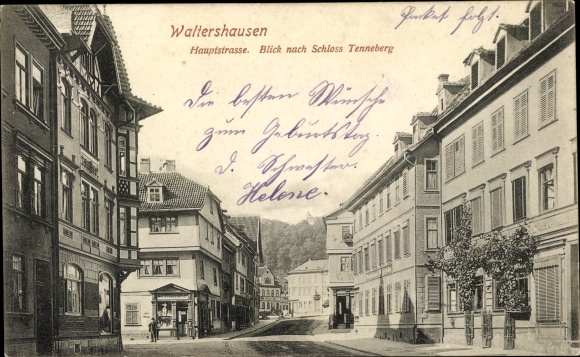 Waltershausen
Hauptstrasse. Blick nach Schloss Tenneberg
Packet folgt.
Die besten Wünsche
zum Geburtstag.
d. Schwester
Helene.